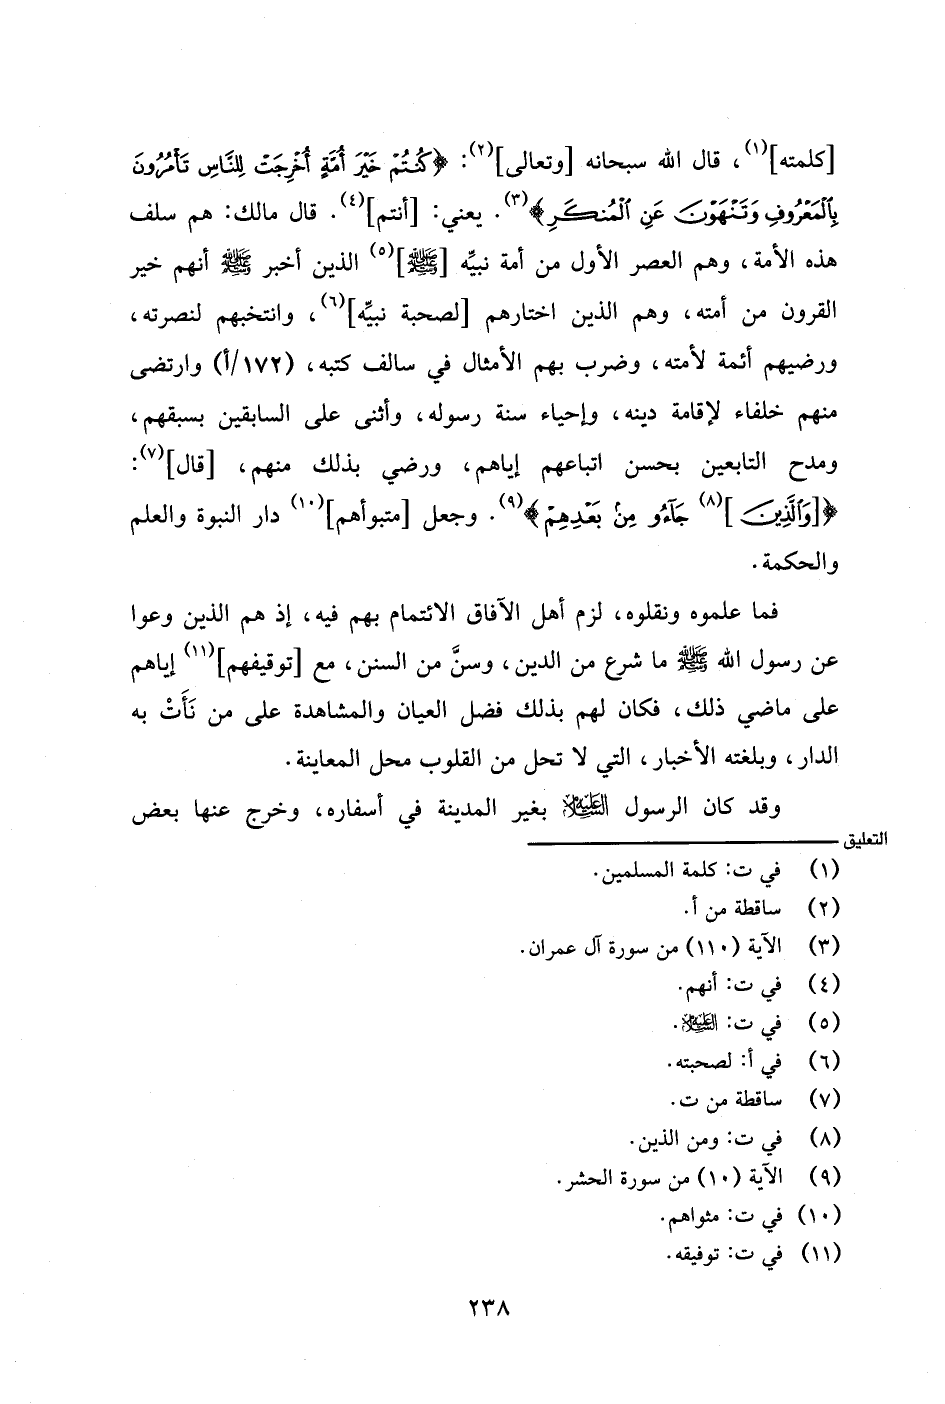 [كلمته](١)، قال الله سبحانه [وتعالى](٢): ﴿كُنتُمْ خَيْرَ أُمَّةٍ أُخْرِجَتْ لِلنَّاسِ تَأْمُرُونَ
بِٱلْمَعْرُوفِ وَتَنْهَوْنَ عَنِ ٱلْمُنكَرِ﴾(٣). يعني: [أنتم](٤). قال مالك: هم سلف
هذه الأمة، وهم العصر الأول من أمة نبيِّه [ﷺ](٥) الذين أخبر ﷺ أنهم خير
القرون من أمته، وهم الذين اختارهم [لصحبة نبيِّه](٦)، وانتخبهم لنصرته،
ورضيهم أئمة لأمته، وضرب بهم الأمثال في سالف كتبه، (١٧٢/أ) وارتضى
منهم خلفاء لإقامة دينه، وإحياء سنة رسوله، وأثنى على السابقين بسبقهم،
ومدح التابعين بحسن اتباعهم إياهم، ورضي بذلك منهم، [قال](٧):
﴿[وَٱلَّذِينَ](٨) جَآءُو مِنۢ بَعْدِهِمْ﴾(٩). وجعل [متبوأهم](١٠) دار النبوة والعلم
والحكمة.
فما علموه ونقلوه، لزم أهل الآفاق الائتمام بهم فيه، إذ هم الذين وعوا
عن رسول الله ﷺ ما شرع من الدين، وسنَّ من السنن، مع [توقيفهم](١١) إياهم
على ماضي ذلك، فكان لهم بذلك فضل العيان والمشاهدة على من نَأَتْ به
الدار، وبلغته الأخبار، التي لا تحل من القلوب محل المعاينة.
وقد كان الرسول عليه السلام بغير المدينة في أسفاره، وخرج عنها بعض
التعليق
(١) في ت: كلمة المسلمين.
(٢) ساقطة من أ.
(٣) الآية (١١٠) من سورة آل عمران.
(٤) في ت: أنهم.
(٥) في ت: عليه السلام.
(٦) في أ: لصحبته.
(٧) ساقطة من ت.
(٨) في ت: ومن الذين.
(٩) الآية (١٠) من سورة الحشر.
(١٠) في ت: مثواهم.
(١١) في ت: توفيقه.
٢٣٨